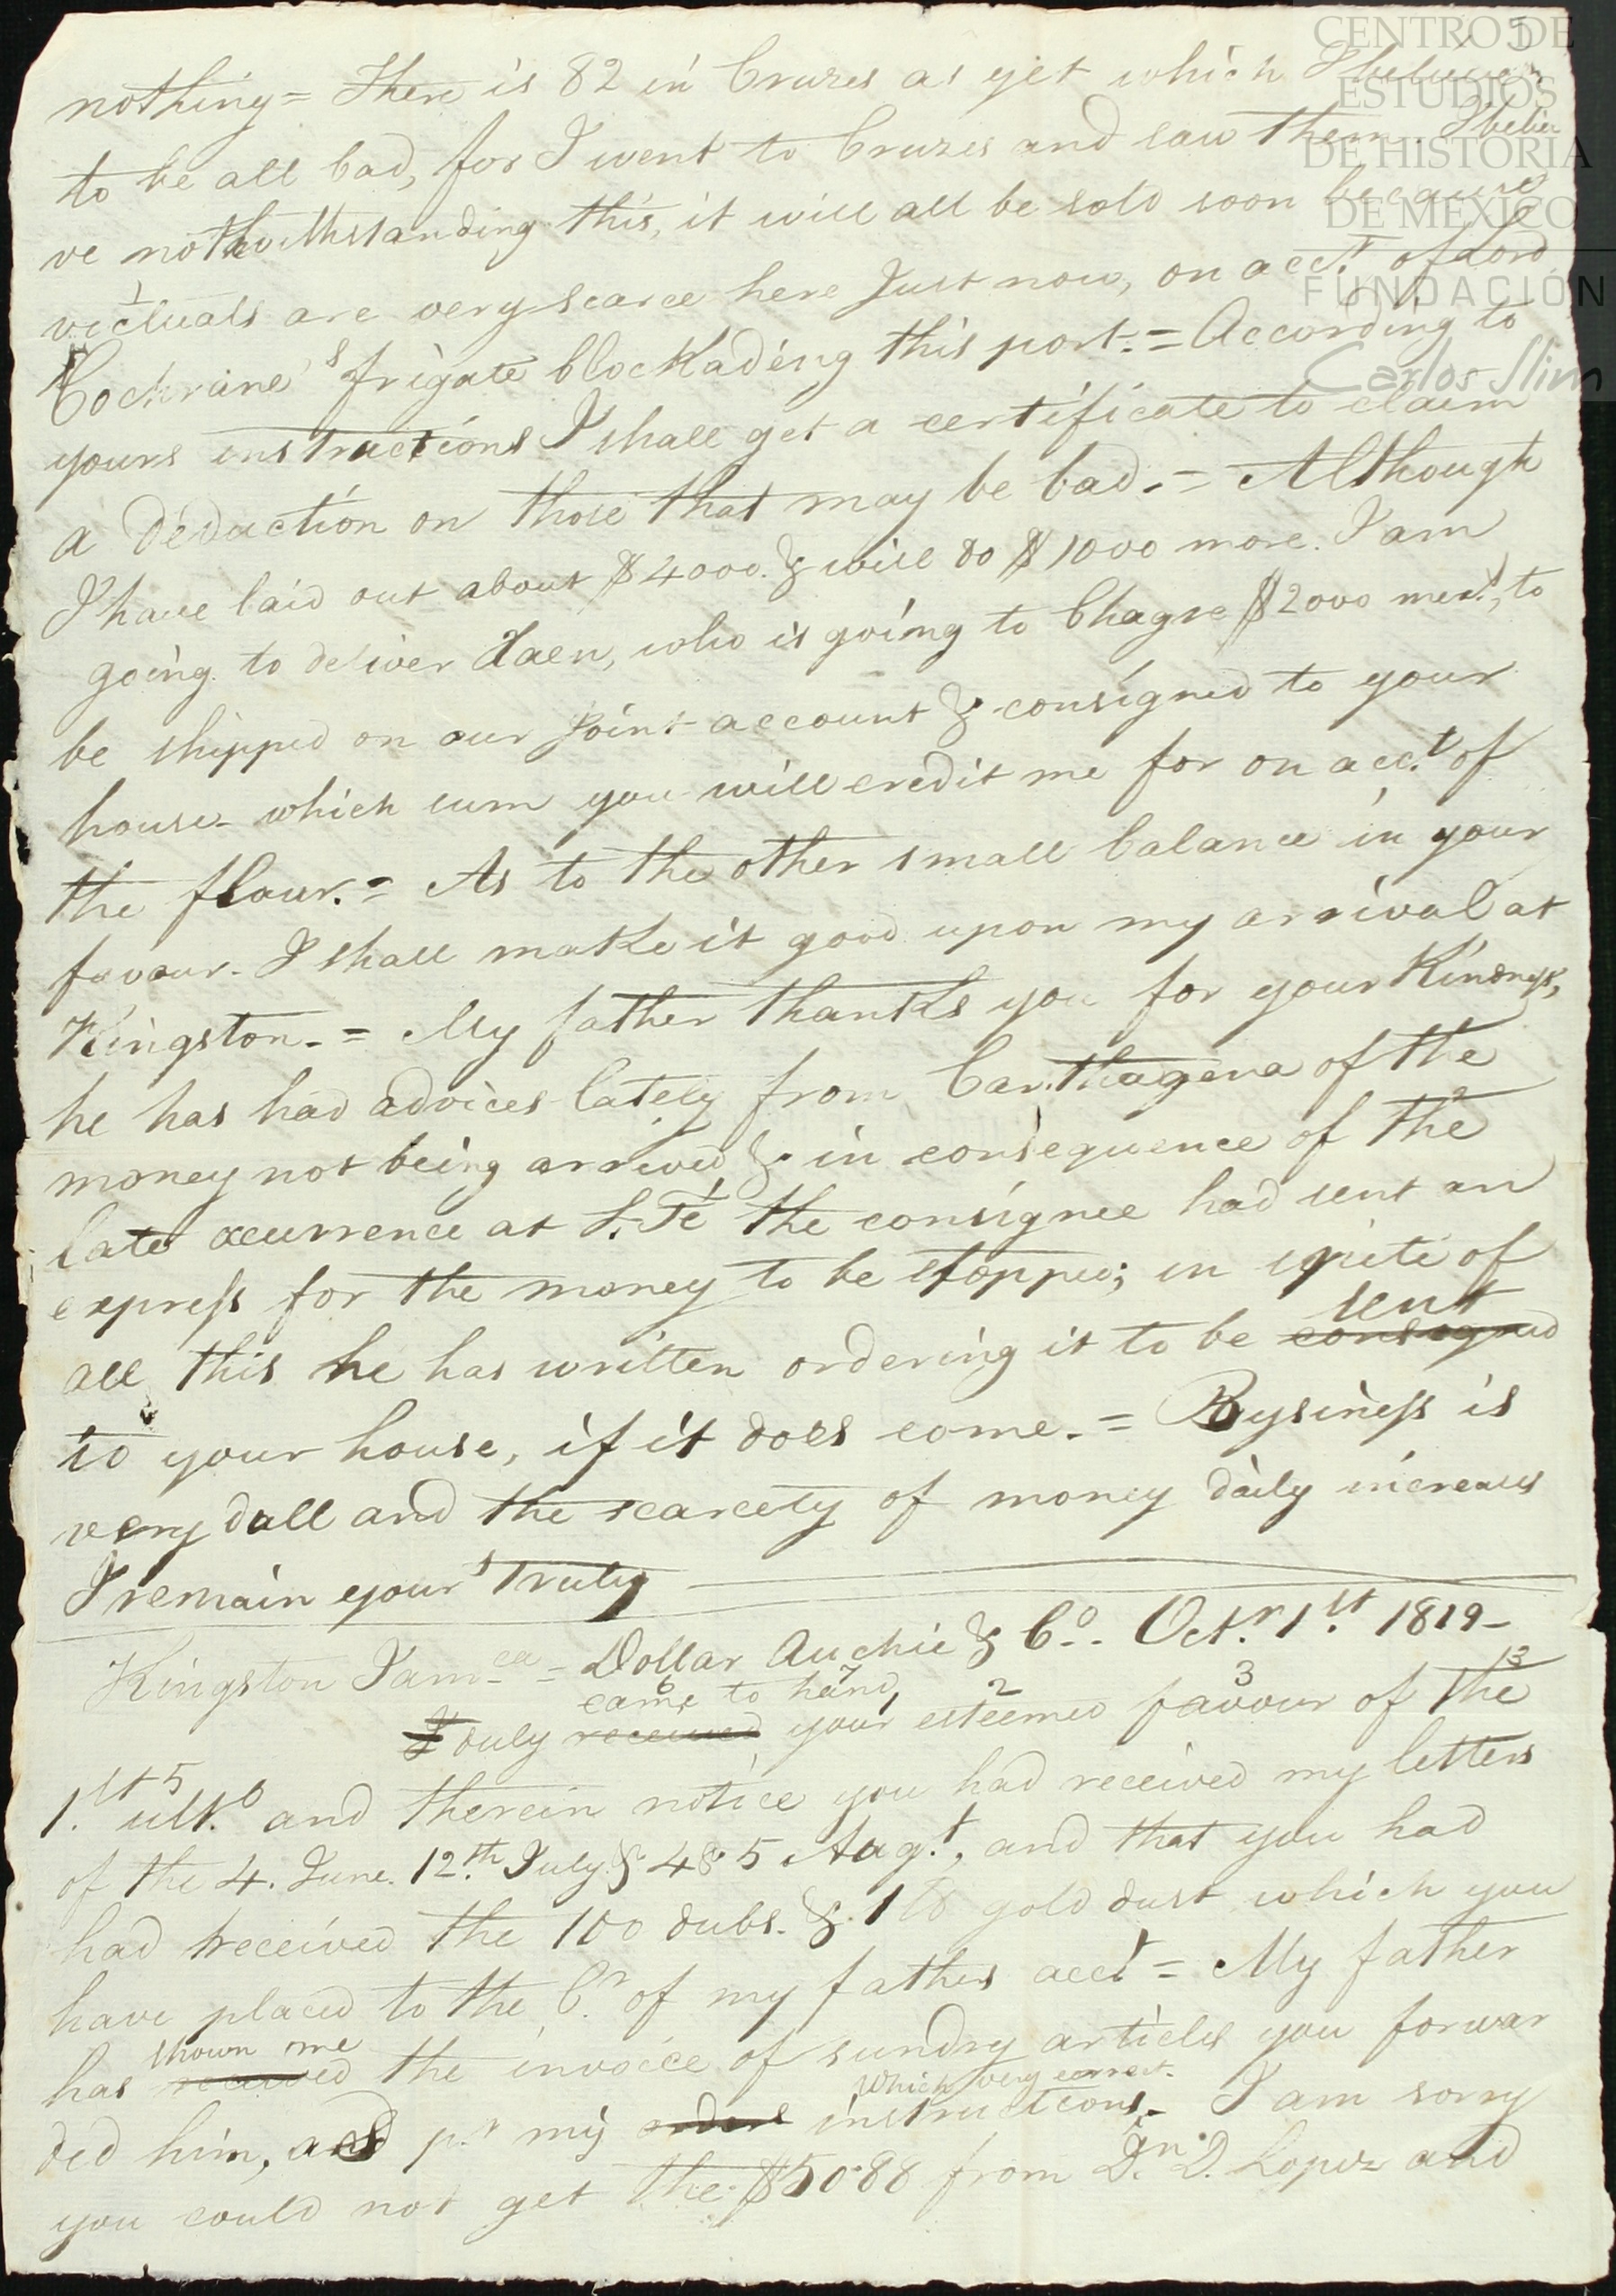 5
CENTRO DE
ESTUDIOS
DE HISTORIA
DE MÉXICO
FUNDACIÓN
Carlos Slim
nothing = There is 82 in Cruzes as yet which I believe
to be all bad, for I went to Cruzes and saw them. I belie
ve nothwithstanding this, it will all be sold soon because
victuals are very scarce here Just now, on acct. of Lord
Cochrane's frigate blockading this port. = According to
yours instructions I shall get a certificate to claim
a deduction on those that may be bad. = Although
I have laid out about $4000. & will do $1000 more. I am
going to deliver Jaen, who is going to Chagre $2000 mext., to
be shipped on our Joint account & consigned to your
house which sum you will credit me for on acct. of
the flour. = As to the other small balance in your
favour. I shall make it good upon my arrival at
Kingston. = My father thanks you for your Kindness,
he has had advices lately from Carthagena of the
money not being arrived & in consequence of the
late ocurrence at S. Fé the consignee had sent an
express for the money to be stopped; in spite of
sent
all this he has written ordering it to be consigned
to your house, if it does come. = Bysiness is
very dull and the scarcety of money daily increases
I remain yours truly
Kingston Jamca = Dollar Auchie & Co. Octr. 1st. 1819 -
came to hand,
6 7 2 3 13
I duly received your esteemed favour of the
1st. 5 ulto. and therein notice you had received my letters
of the 4. June. 12th. July & 4 & 5 Augt., and that you had
had received the 100 dubs. & 1 lb gold dust which you
have placed to the Cr. of my fathers acct = My father
shown me
has received the invoice of sundry articles you forwar
which very correct.
ded him, as pr. my orders instructions. I am sorry
you could not get the $5088 from Dn. Dn. Lopez and